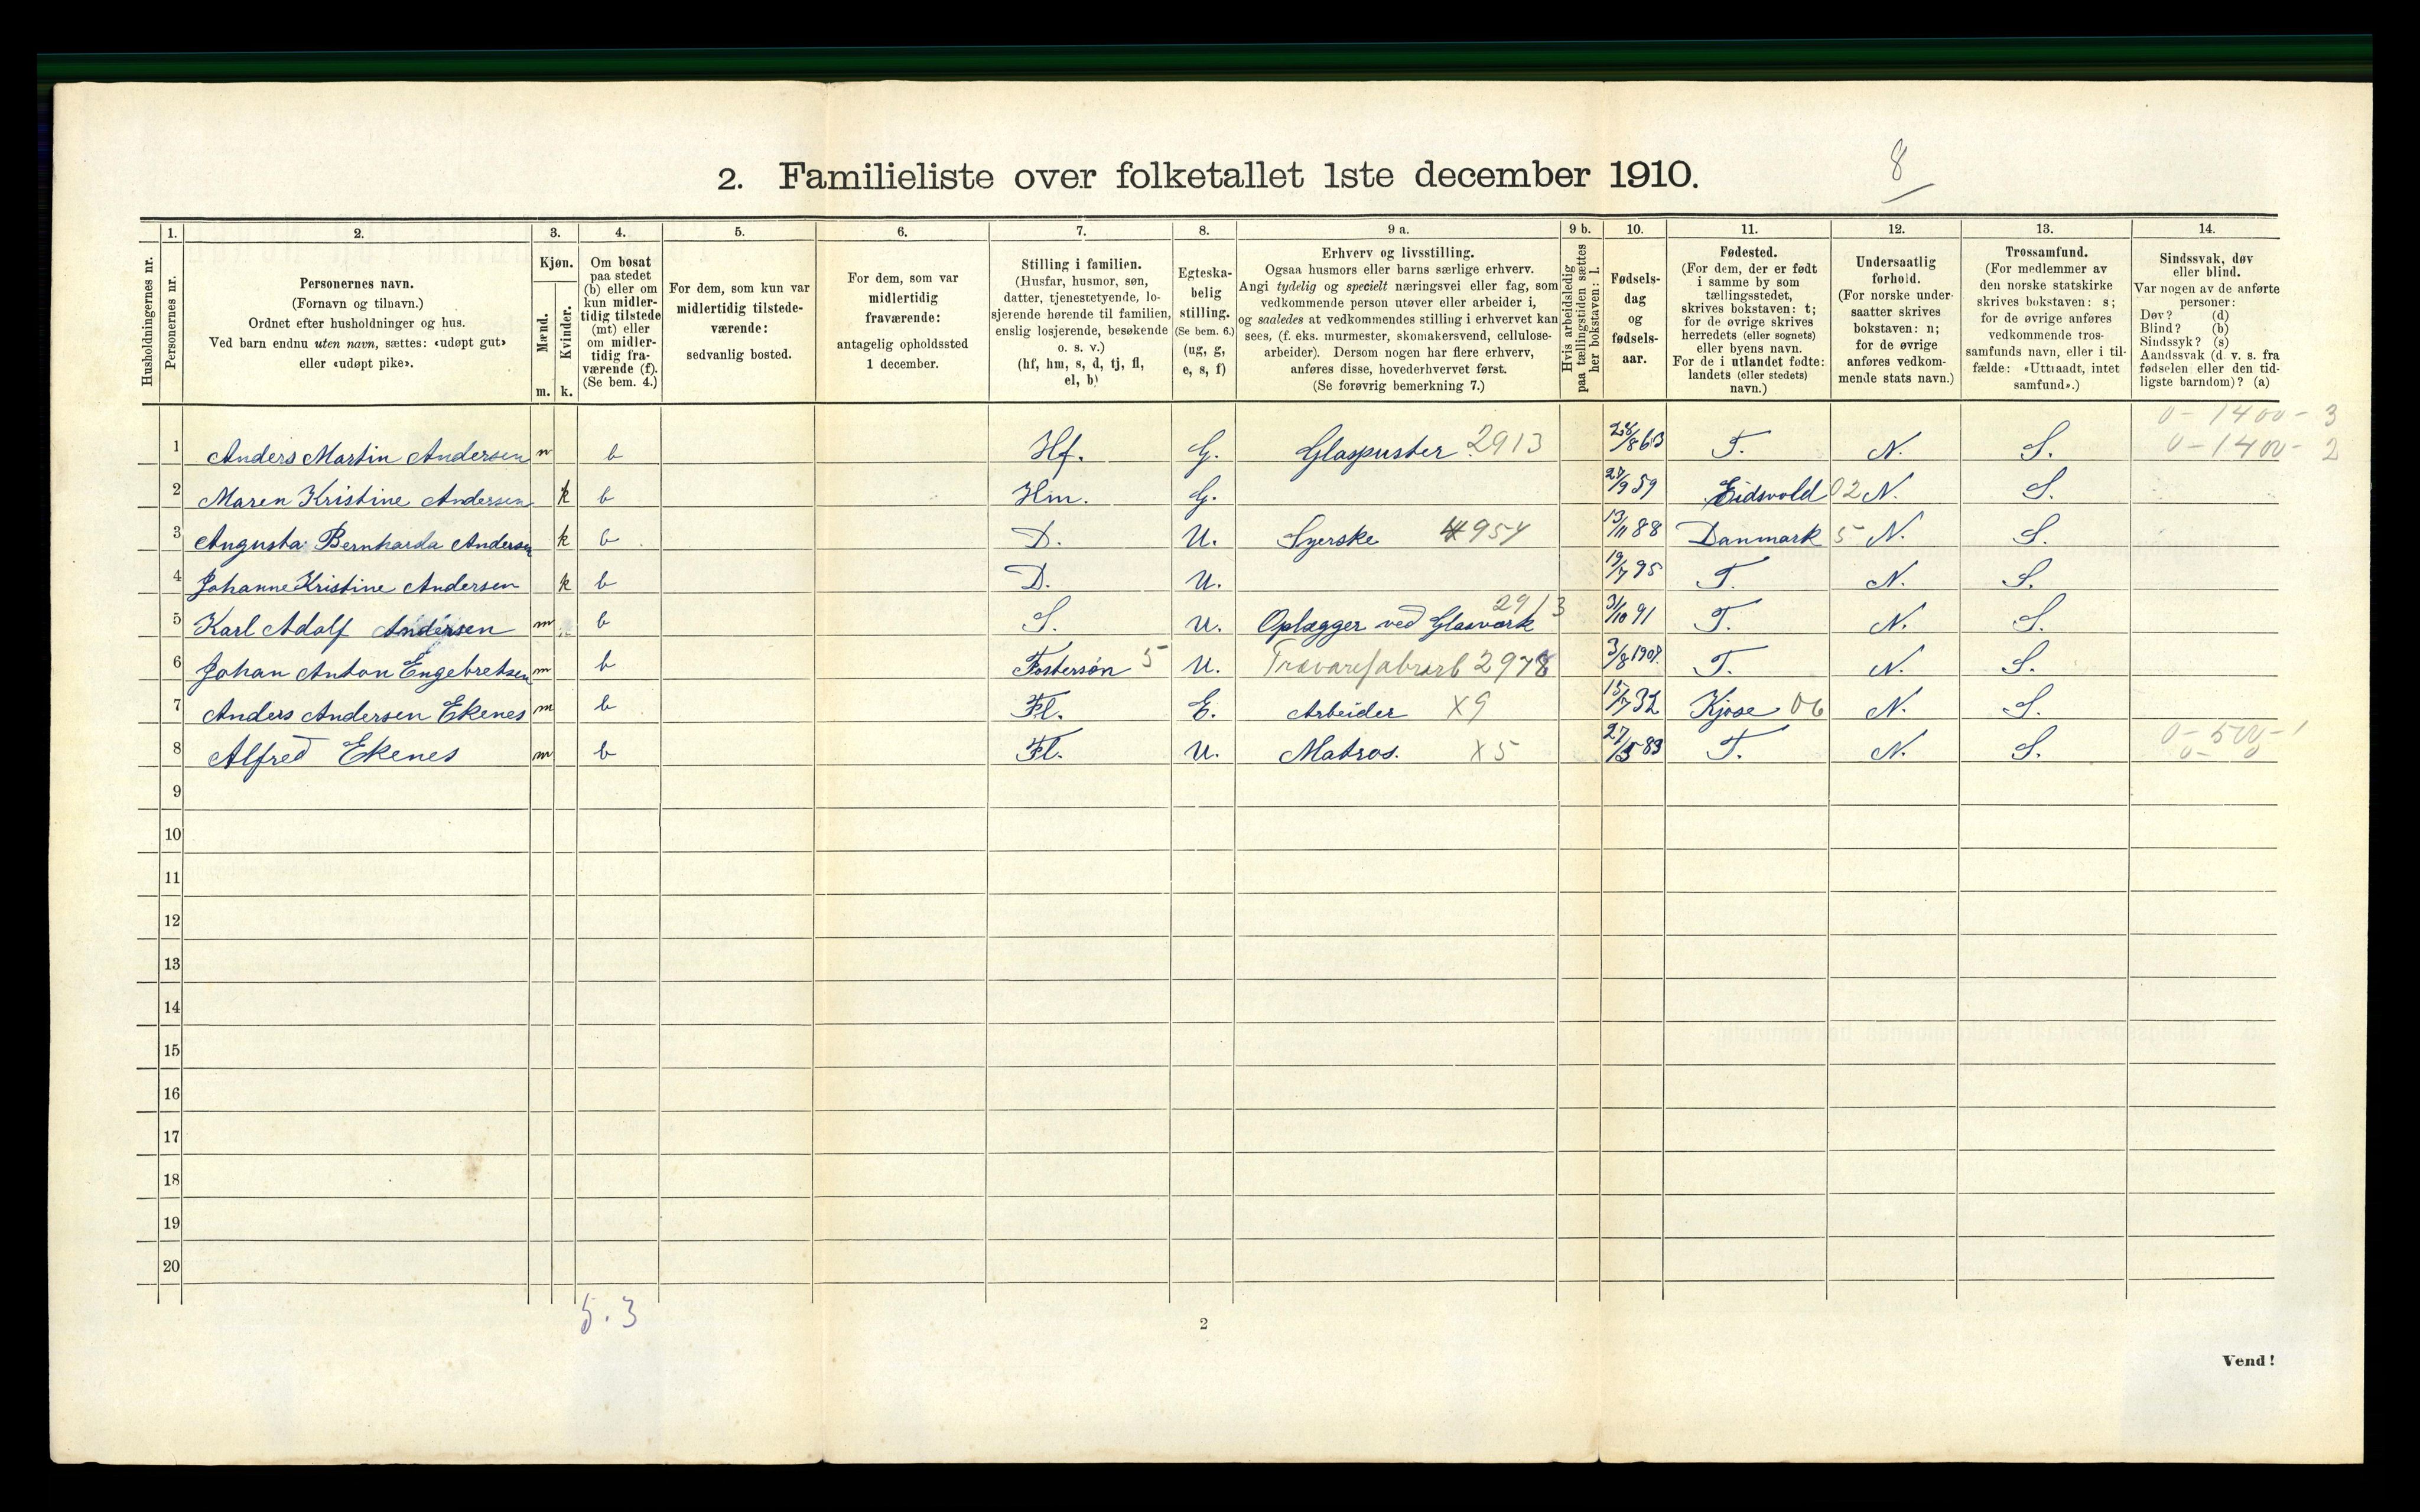 2. Familieliste over folketallet 1ste december 1910.
8
1. 2. 3. 4. 5. 6. 7. 8. 9 a. 9 b. 10. 11. 12. 13. 14.
Husholdningernes nr.
Personernes nr.
Personernes navn.
(Fornavn og tilnavn.)
Ordnet efter husholdninger og hus.
Ved barn endnu uten navn, sættes: «udøpt gut»
eller «udøpt pike».
Kjøn.
Mænd.
Kvinder.
m. k.
Om bosat
paa stedet
(b) eller om
kun midler-
tidig tilstede
(mt) eller
om midler-
tidig fra-
værende (f).
(Se bem. 4.)
For dem, som kun var
midlertidig tilstede-
værende:
sedvanlig bosted.
For dem, som var
midlertidig
fraværende:
antagelig opholdssted
1 december.
Stilling i familien.
(Husfar, husmor, søn,
datter, tjenestetyende, lo-
sjerende hørende til familien,
enslig losjerende, besøkende
o. s. v.)
(hf, hm, s, d, tj, fl,
el, b)
Egteska-
belig
stilling.
(Se bem. 6.)
(ug, g,
e, s, f)
Erhverv og livsstilling.
Ogsaa husmors eller barns særlige erhverv.
Angi tydelig og specielt næringsvei eller fag, som
vedkommende person utøver eller arbeider i,
og saaledes at vedkommendes stilling i erhvervet kan
sees, (f. eks. murmester, skomakersvend, cellulose-
arbeider). Dersom nogen har flere erhverv,
anføres disse, hovederhvervet først.
(Se forøvrig bemerkning 7.)
Hvis arbeidsledig
paa tællingstiden sættes
her bokstaven: l.
Fødsels-
dag
og
fødsels-
aar.
Fødested.
(For dem, der er født
i samme by som
tællingsstedet,
skrives bokstaven: t;
for de øvrige skrives
herredets (eller sognets)
eller byens navn.
For de i utlandet fødte:
landets (eller stedets)
navn.)
Undersaatlig
forhold.
(For norske under-
saatter skrives
bokstaven: n;
for de øvrige
anføres vedkom-
mende stats navn.)
Trossamfund.
(For medlemmer av
den norske statskirke
skrives bokstaven: s;
for de øvrige anføres
vedkommende tros-
samfunds navn, eller i til-
fælde: «Uttraadt, intet
samfund».)
Sindssvak, døv
eller blind.
Var nogen av de anførte
personer:
Døv? (d)
Blind? (b)
Sindssyk? (s)
Aandssvak (d. v. s. fra
fødselen eller den tid-
ligste barndom)? (a)
0 - 1400 - 3
1 Anders Martin Andersen m b Hf. G. Glaspuster 2913 26/8 63 T. N. S. 0 - 1400 - 2
2 Maren Kristine Andersen k b Hm. G. 27/9 59 Eidsvold 02 N. S.
3 Augusta Bernharda Andersen k b D. U. Syerske 4954 13/11 88 Danmark 5 N. S.
4 Johanne Kristine Andersen k b D. U. 19/7 95 T. N. S.
5 Karl Adolf Andersen m b S. U. Oplægger ved Glasværk 2913 31/10 91 T. N. S.
6 Johan Anton Engebretsen m b Fostersøn 5 U. Trævarefabrarb 2978 3/8 1908. T. N. S.
7 Anders Andersen Ekenes m b Fl. E. Arbeider X9 15/7 32 Kjose 06 N. S.
8 Alfred Ekenes m b Fl. U. Matros. X5 27/5 83 T. N. S. 0 - 500 - 1
0 - 0
9
10
11
12
13
14
15
16
17
18
19
20
5. 3
2
Vend!